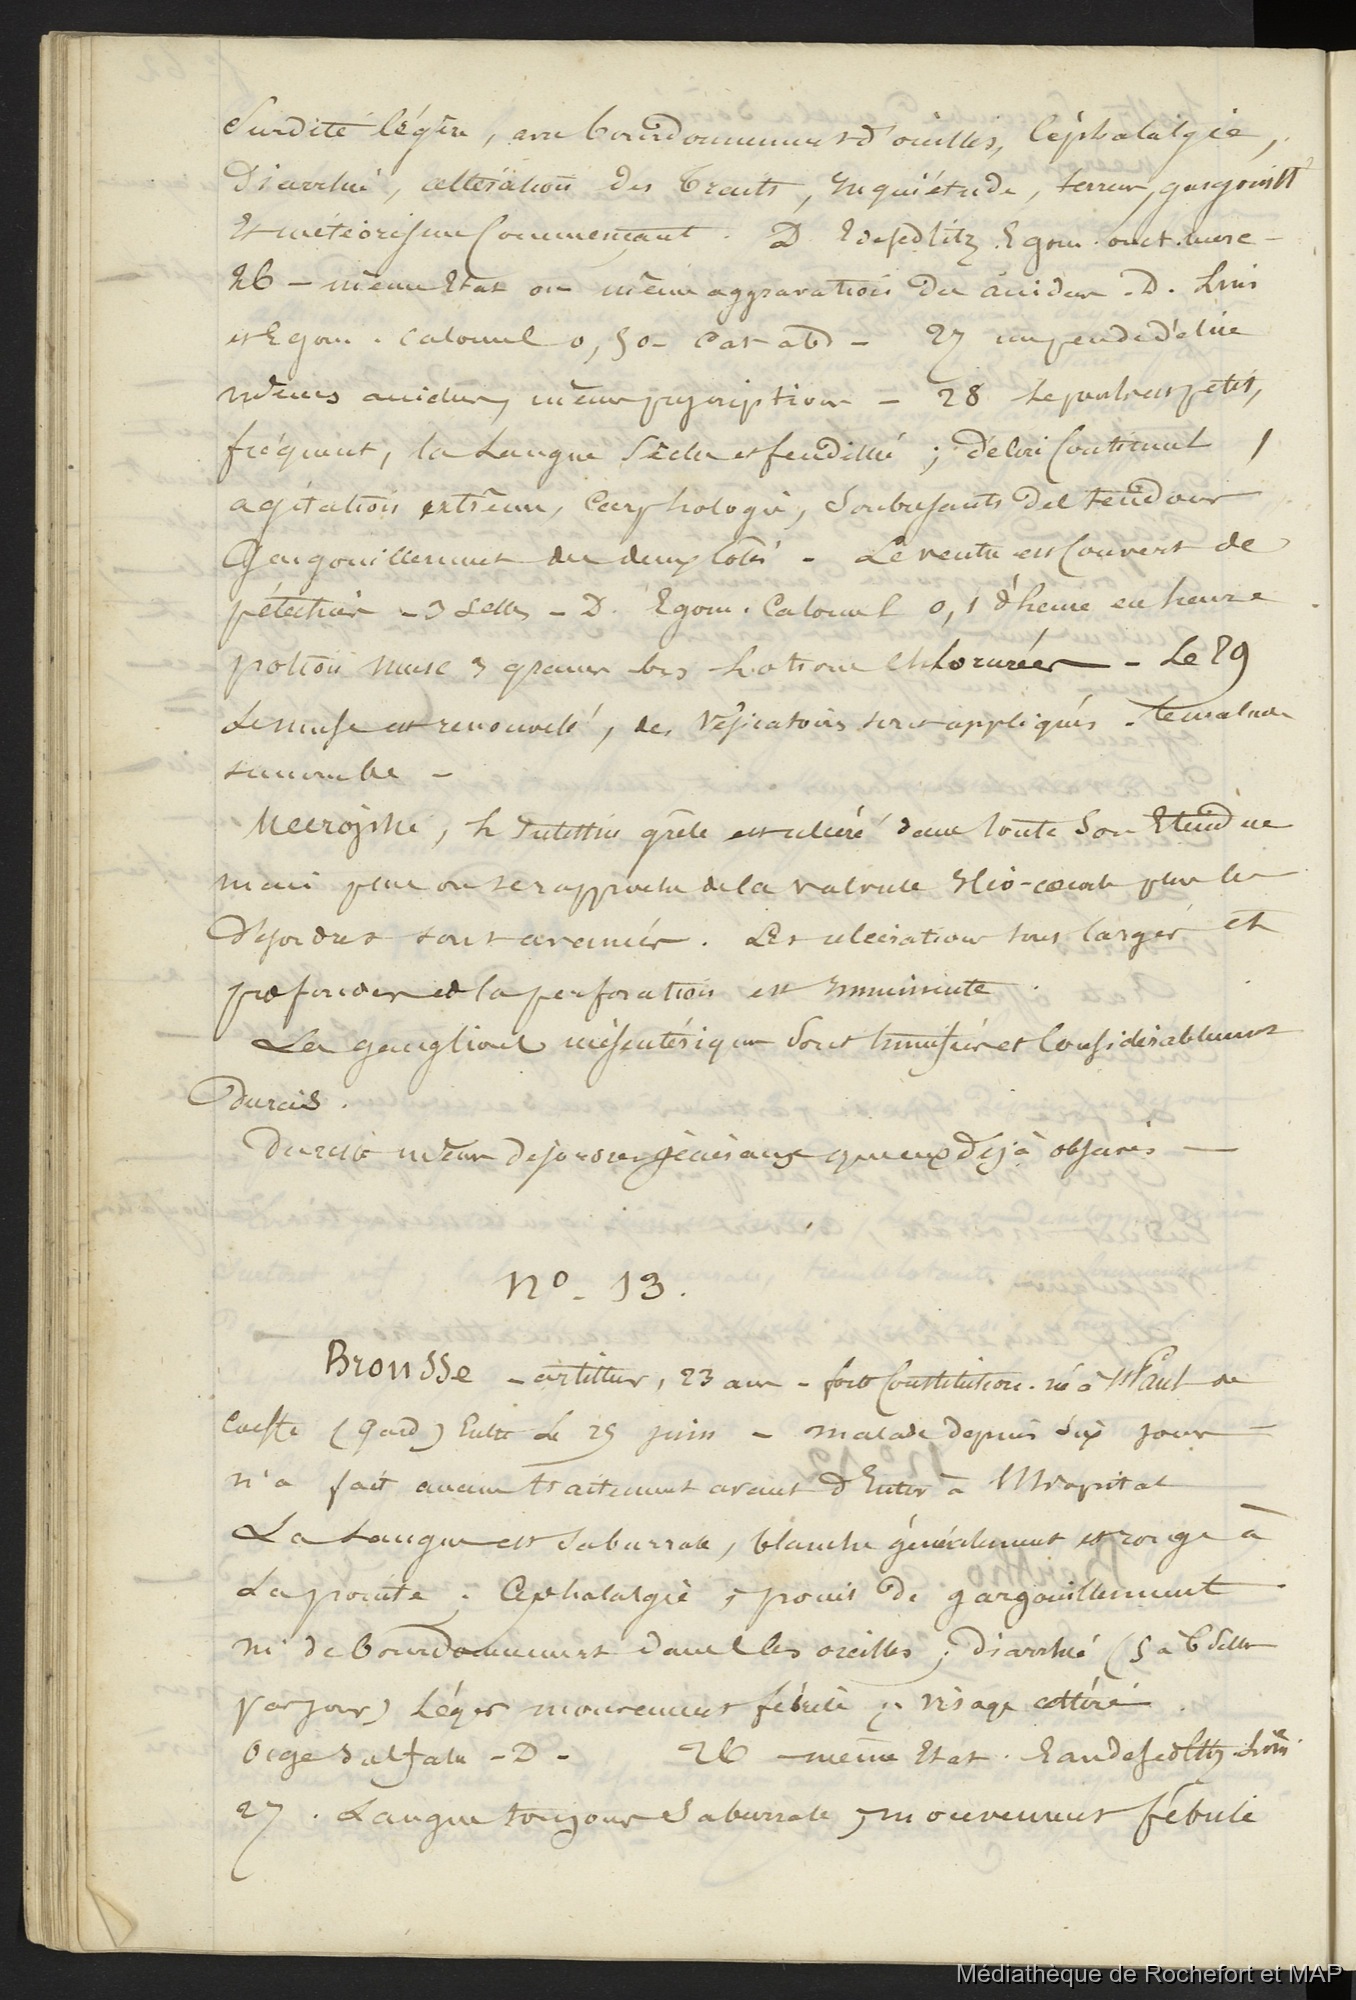 Surdité légère, avec bourdonnement d'oreilles, Céphalalgie,
Diarrhée, altération des traits, Inquiétude, terreur, gargouillt
Et météorisme Commençant. D. Sedlitz. Egom. onct. merc -
26 - même Etat ou même aggravation des accidens - D. Lim
et Egom. Calomel 0,50 - Cat ab - 27 un peu de délire
mêmes accidens, même prescription - 28 Le pouls est petit,
fréquent, la Langue sèche et fendillée ; délire Continuel,
agitation extrême, Carphologie, Soubresauts des tendons
Gargouillement des deux côtés - Le ventre est Couvert de
pétéchies - 3 selles - D. Egom. Calomel 0,1 d'heure en heure
potion musc 3 grammes bis Lotions Chlorurées - Le 29
Le musc est renouvelé, des Vésicatoires sont appliqués - le malade
succombe -
Necropsie, L'Intestin grêle est ulcéré dans toute Son Etendue
mais plus on se rapproche de la valvule Iléo-coecale plus les
désordres sont avancés. Les ulcérations sont larges et
profondes et la perforation est Imminente.
Les ganglions mésentériques Sont tuméfiés et Considérablement
durcis.
Du reste même désordres généraux que ceux déjà observés -
No. 13.
Brousse - artilleur, 23 ans - forte Constitution. né à St Paul de
(gard) Entre Le 25 juin - malade depuis dix jours -
n'a fait aucun traitement avant d'Entrer à l'Hôpital
La Langue est Saburrale, blanche généralement et rouge à
La pointe ; Cephalalgie, point de gargouillement
ni de bourdonnement dans les oreilles ; diarrhée (5 à 6 selles
par jour) Léger mouvement fébrile ; visage altéré.
Orge Sulfate - D - 26 - même Etat. Eau de Sedlitz Lim
27. Langue toujours Saburrale, mouvement fébrile
Médiathèque de Rochefort et MAP